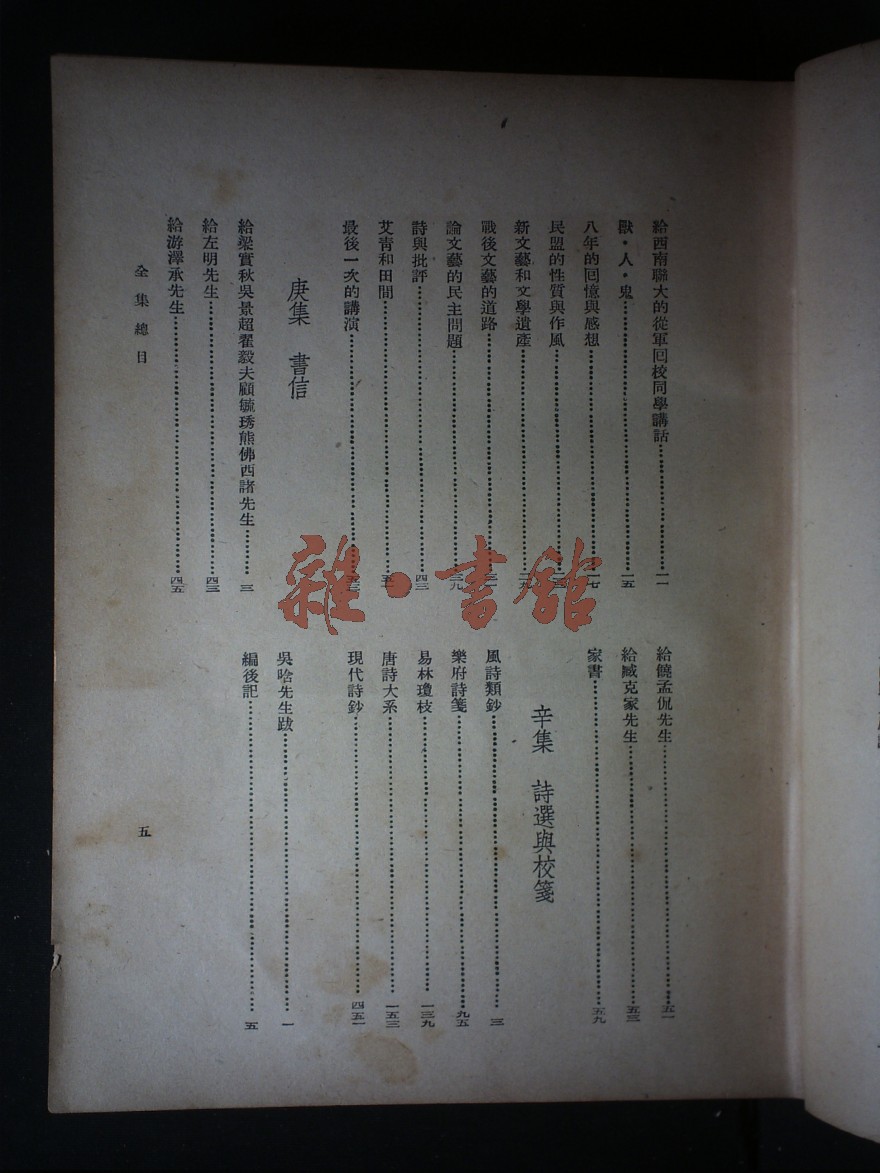 給西南聯大的從軍回校同學講話……一一
獸・人・鬼……一五
八年的回憶與感想……一七
民盟的性質與作風
新文藝和文學遺產
戰後文藝的道路
論文藝的民主問題……三九
詩與批評……四三
艾青和田間
最後一次的講演
庚集 書信
給梁實秋吳景超翟毅夫顧毓琇熊佛西諸先生……三
給左明先生……四三
給游澤承先生……四五
給饒孟侃先生……五一
給臧克家先生……五三
家書……五九
辛集 詩選與校箋
風詩類鈔……三
樂府詩箋……九五
易林瓊枝……一三九
唐詩大系……一五三
現代詩鈔……四五一
吳晗先生跋……一
編後記……五
全集總目
五
雜・書館